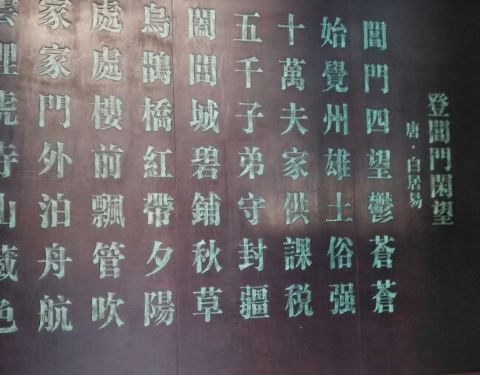 登閶門閑望
唐·白居易
閶門四望鬱蒼蒼
始覺州雄土俗强
十萬夫家供課税
五千子弟守封疆
闔閭城碧鋪秋草
烏鵲橋紅帶夕陽
處處樓前飄管吹
家家門外泊舟航
雲埋虎寺山藏色